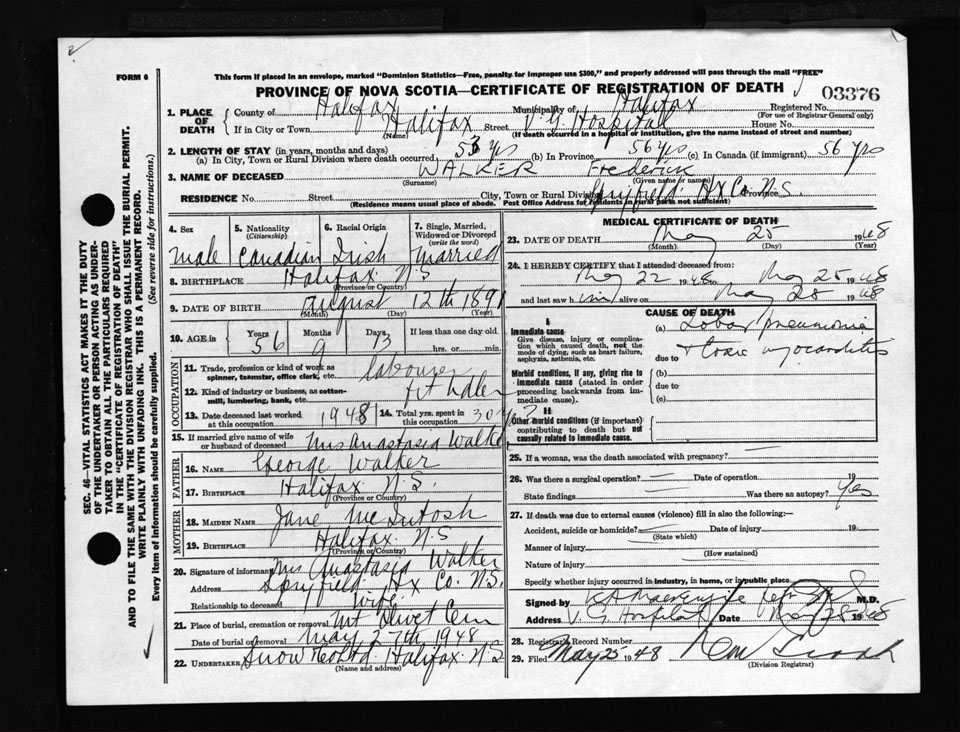 FORM 6
This form if placed in an envelope, marked "Dominion Statistics—Free, penalty for improper use $300," and properly addressed will pass through the mail "FREE"
PROVINCE OF NOVA SCOTIA—CERTIFICATE OF REGISTRATION OF DEATH
03376
1. PLACE OF DEATH County of Halifax Municipality of Halifax Registered No.
(For use of Registrar General only)
If in City or Town Halifax Street V. G. Hospital House No.
(Name) (If death occurred in a hospital or institution, give the name instead of street and number)
2. LENGTH OF STAY (in years, months and days)
(a) In City, Town or Rural Division where death occurred 53 yrs (b) In Province 56 yrs (c) In Canada (if immigrant) 56 yrs
3. NAME OF DECEASED WALKER Frederick
(Surname) (Given name or names)
RESIDENCE No. Street City, Town or Rural Division Spryfield Hx Co. N.S. Province
(Residence means usual place of abode. Post Office Address for residents in rural parts not sufficient)
4. Sex male
5. Nationality (Citizenship) Canadian
6. Racial Origin Irish
7. Single, Married, Widowed or Divorced (write the word) Married
8. BIRTHPLACE Halifax N.S
(Province or Country)
9. DATE OF BIRTH August 12th 1891
(Month) (Day) (Year)
10. AGE in Years 56 Months 9 Days 13 If less than one day old
hrs. or min.
OCCUPATION
11. Trade, profession or kind of work as spinner, teamster, office clerk, etc. labourer
12. Kind of industry or business, as cotton-mill, lumbering, bank, etc.
13. Date deceased last worked at this occupation 1948
14. Total yrs. spent in this occupation 30
15. If married give name of wife or husband of deceased Mrs Anastasia Walker
FATHER
16. NAME George Walker
17. BIRTHPLACE Halifax N.S.
(Province or Country)
MOTHER
18. MAIDEN NAME Jane McIntosh
19. BIRTHPLACE Halifax N.S
(Province or Country)
20. Signature of informant Mrs Anastasia Walker
Address Spryfield Hx Co. N.S.
Relationship to deceased Wife
21. Place of burial, cremation or removal Mt Olivet Cem
Date of burial or removal May 27th 1948
22. UNDERTAKER Snow & Co Ltd. Halifax N S
(Name and address)
MEDICAL CERTIFICATE OF DEATH
23. DATE OF DEATH May 25 1948
(Month) (Day) (Year)
24. I HEREBY CERTIFY that I attended deceased from:
May 22 1948 to May 25 1948
and last saw him alive on May 25 1948
CAUSE OF DEATH
I
Immediate cause
Give disease, injury or complication which caused death, not the mode of dying, such as heart failure, asphyxia, asthenia, etc.
(a) Lobar pneumonia
& toxic myocarditis
due to
Morbid conditions, if any, giving rise to immediate cause (stated in order proceeding backwards from immediate cause).
(b)
due to
(c)
II
Other morbid conditions (if important) contributing to death but not causally related to immediate cause.
25. If a woman, was the death associated with pregnancy?
26. Was there a surgical operation? Date of operation 19
State findings Was there an autopsy? Yes
27. If death was due to external causes (violence) fill in also the following:—
Accident, suicide or homicide? Date of injury 19
(State which)
Manner of injury
(How sustained)
Nature of injury
Specify whether injury occurred in industry, in home, or in public place.
Signed by M.D.
Address V. G. Hospital Date May 28 1948
28. Registrar's Record Number
29. Filed May 25 1948
(Division Registrar)
SEC. 46—VITAL STATISTICS ACT MAKES IT THE DUTY
OF THE UNDERTAKER OR PERSON ACTING AS UNDER-
TAKER TO OBTAIN ALL THE PARTICULARS REQUIRED
IN THE "CERTIFICATE OF REGISTRATION OF DEATH"
AND TO FILE THE SAME WITH THE DIVISION REGISTRAR WHO SHALL ISSUE THE BURIAL PERMIT.
WRITE PLAINLY WITH UNFADING INK. THIS IS A PERMANENT RECORD.
Every item of information should be carefully supplied. (See reverse side for instructions.)